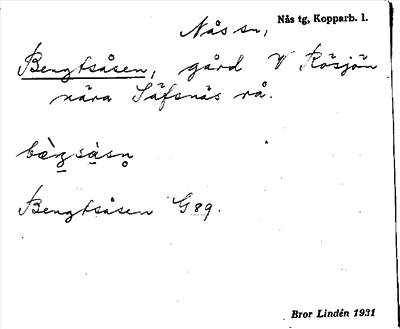 Nås sn, Nås tg, Kopparb. l.
Bengtsåsen, gård V Rösjön
nära Säfsnäs rå.
bæ̀ŋsàsn̥
Bengtsåsen G89.
Bror Lindén 1931